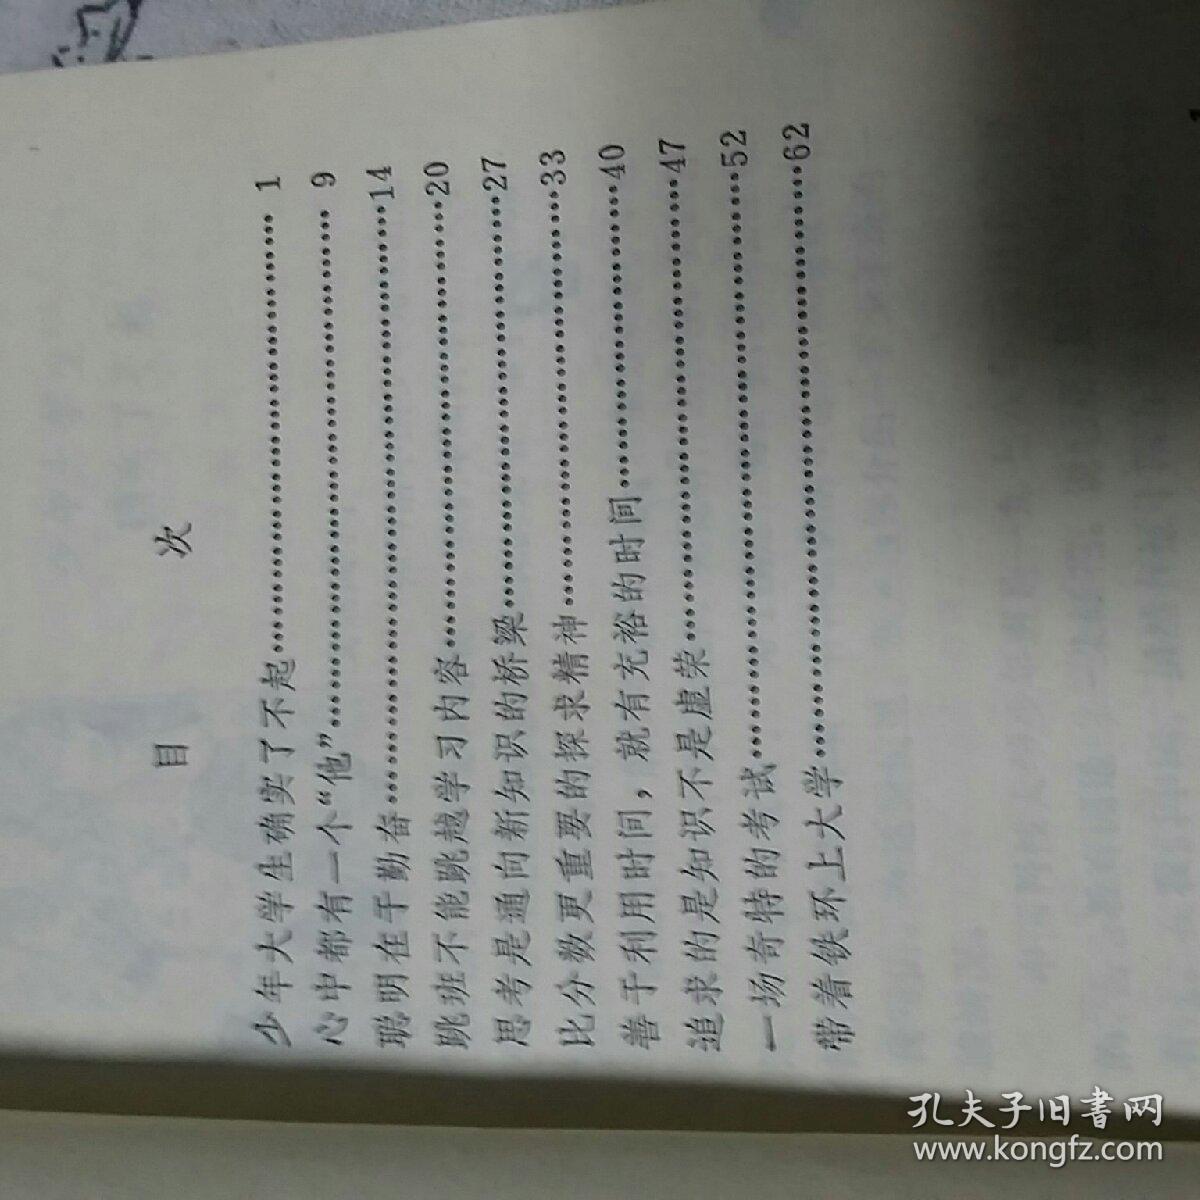 目 次
少年大学生确实了不起…………………………………… 1
心中都有一个“他”…………………………………… 9
聪明在于勤奋……………………………………14
跳班不能跳越学习内容……………………………………20
思考是通向新知识的桥梁……………………………………27
比分数更重要的探求精神……………………………………33
善于利用时间，就有充裕的时间……………………………………40
追求的是知识不是虚荣……………………………………47
一场奇特的考试……………………………………52
带着铁环上大学……………………………………62
孔夫子旧书网
www.kongfz.com